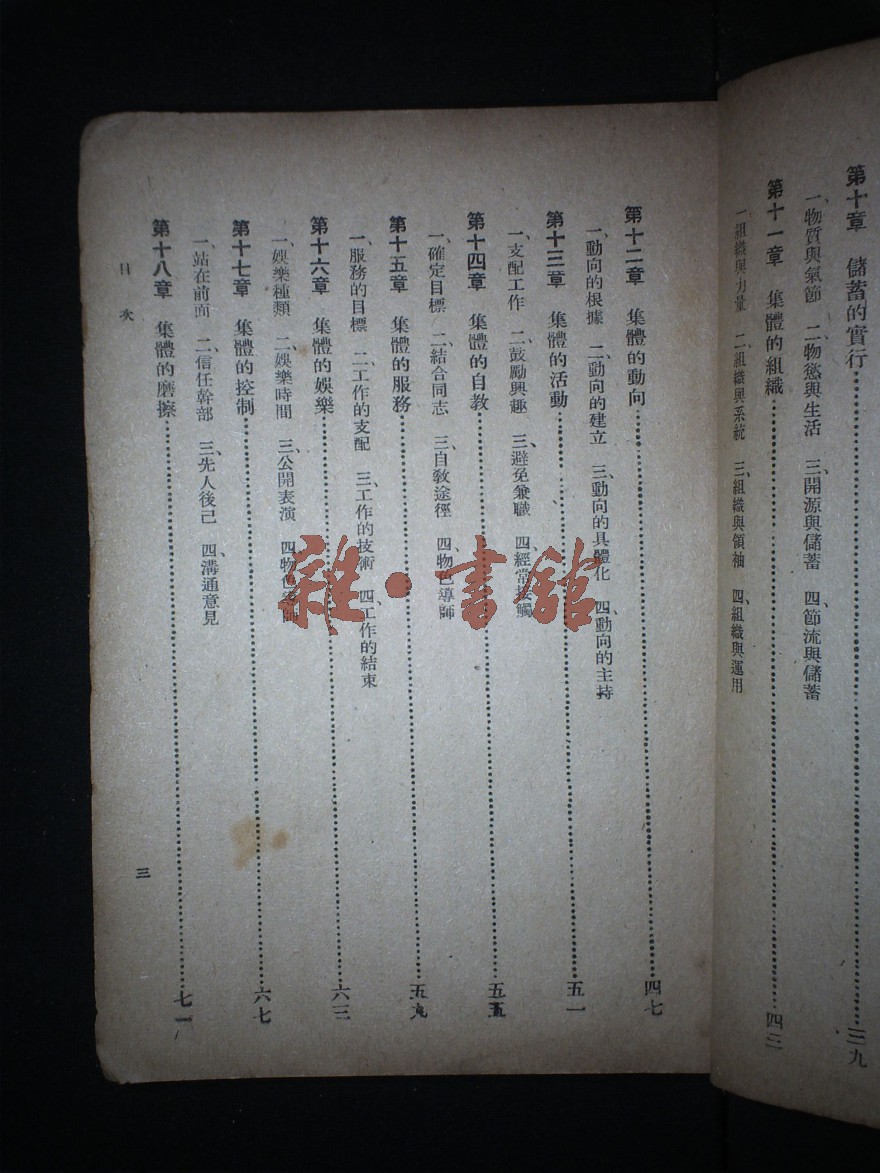 第十章 儲蓄的實行……三九
一、物質與氣節 二、物慾與生活 三、開源與儲蓄 四、節流與儲蓄
第十一章 集體的組織……四三
一、組織與力量 二、組織與系統 三、組織與領袖 四、組織與運用
第十二章 集體的動向……四七
一、動向的根據 二、動向的建立 三、動向的具體化 四、動向的主持
第十三章 集體的活動……五一
一、支配工作 二、鼓勵興趣 三、避免兼職 四、經常接觸
第十四章 集體的自教……五五
一、確定目標 二、結合同志 三、自教途徑 四、物色導師
第十五章 集體的服務……五九
一、服務的目標 二、工作的支配 三、工作的技術 四、工作的結束
第十六章 集體的娛樂……六三
一、娛樂種類 二、娛樂時間 三、公開表演 四、物色導師
第十七章 集體的控制……六七
一、站在前面 二、信任幹部 三、先人後己 四、溝通意見
第十八章 集體的磨擦……七一
目次
三
雜·書館